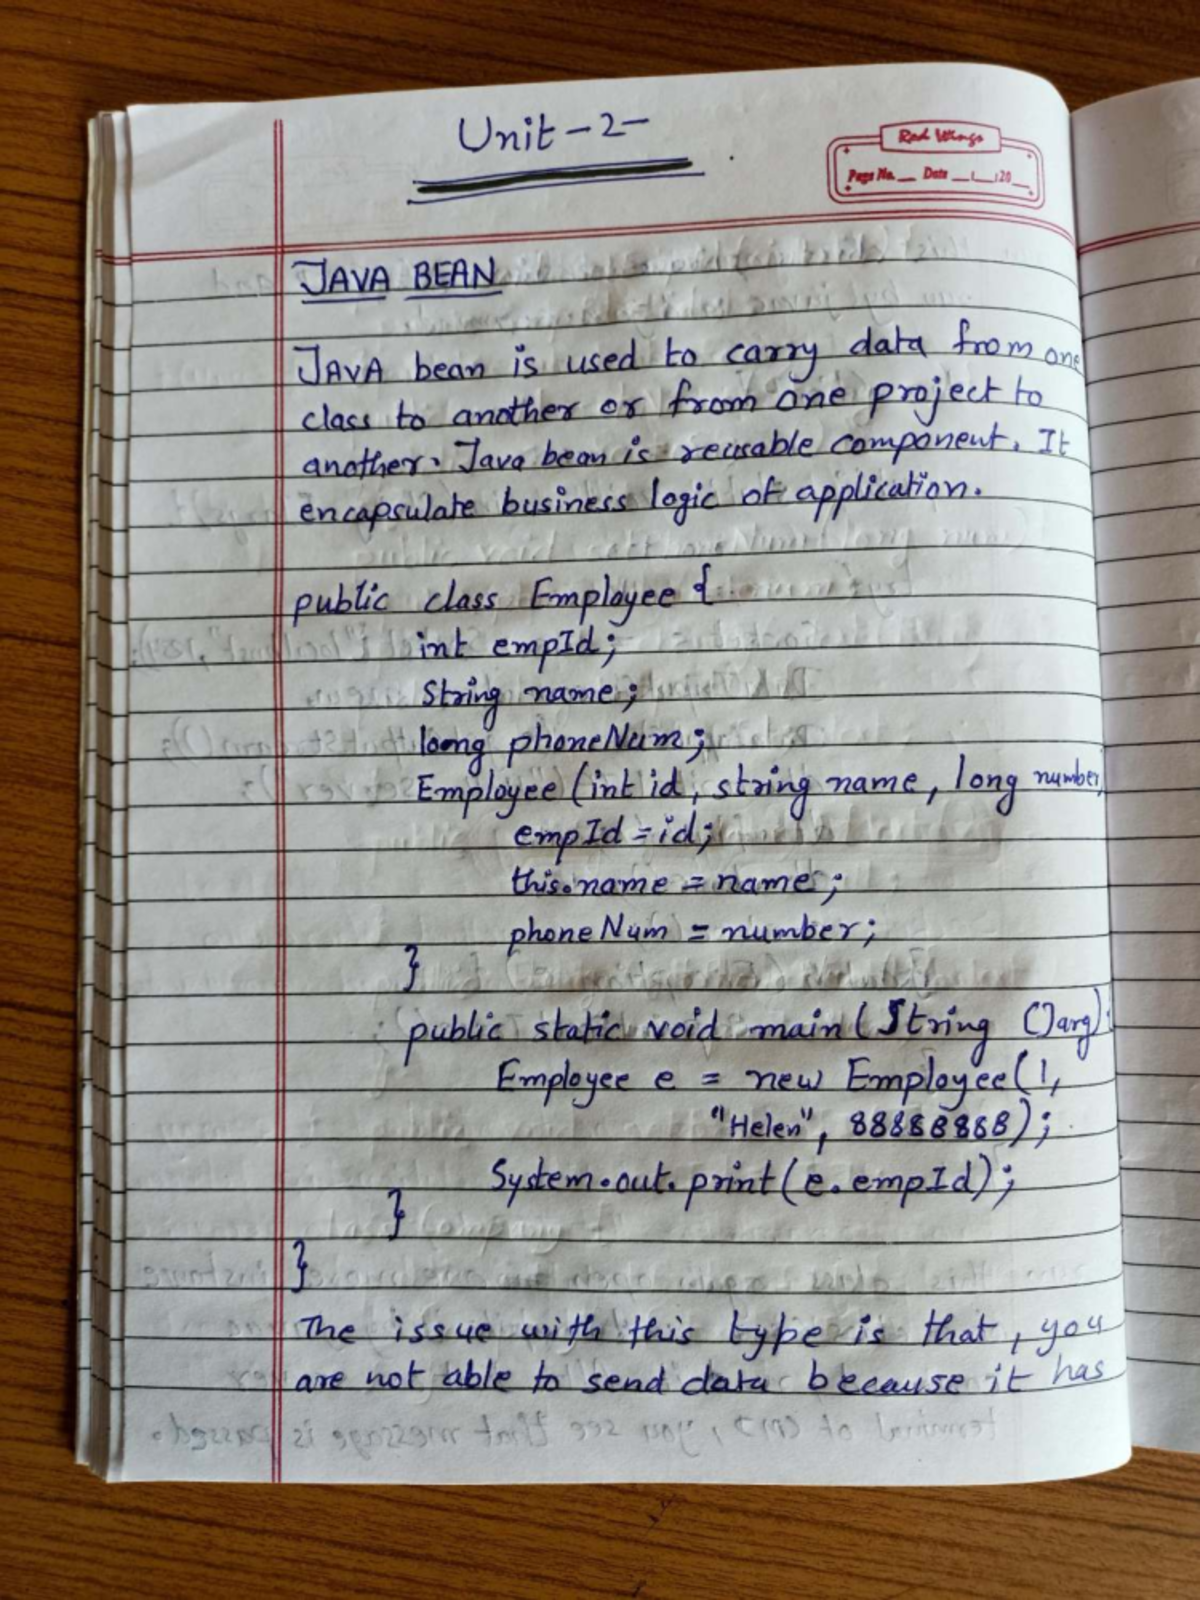 Unit-2-
Red Wings
Page No. __ Date __/__/20__
JAVA BEAN
JAVA bean is used to carry data from one
class to another or from one project to
another. Java bean is reusable component. It
encapsulate business logic of application.
public class Employee {
int empId;
String name;
loong phoneNum;
Employee (int id, string name, long number
empId = id;
this.name = name;
phoneNum = number;
}
public static void main(String []arg){
Employee e = new Employee(1,
"Helen", 88888888);
System.out.print(e.empId);
}
}
The issue with this type is that, you
are not able to send data because it has